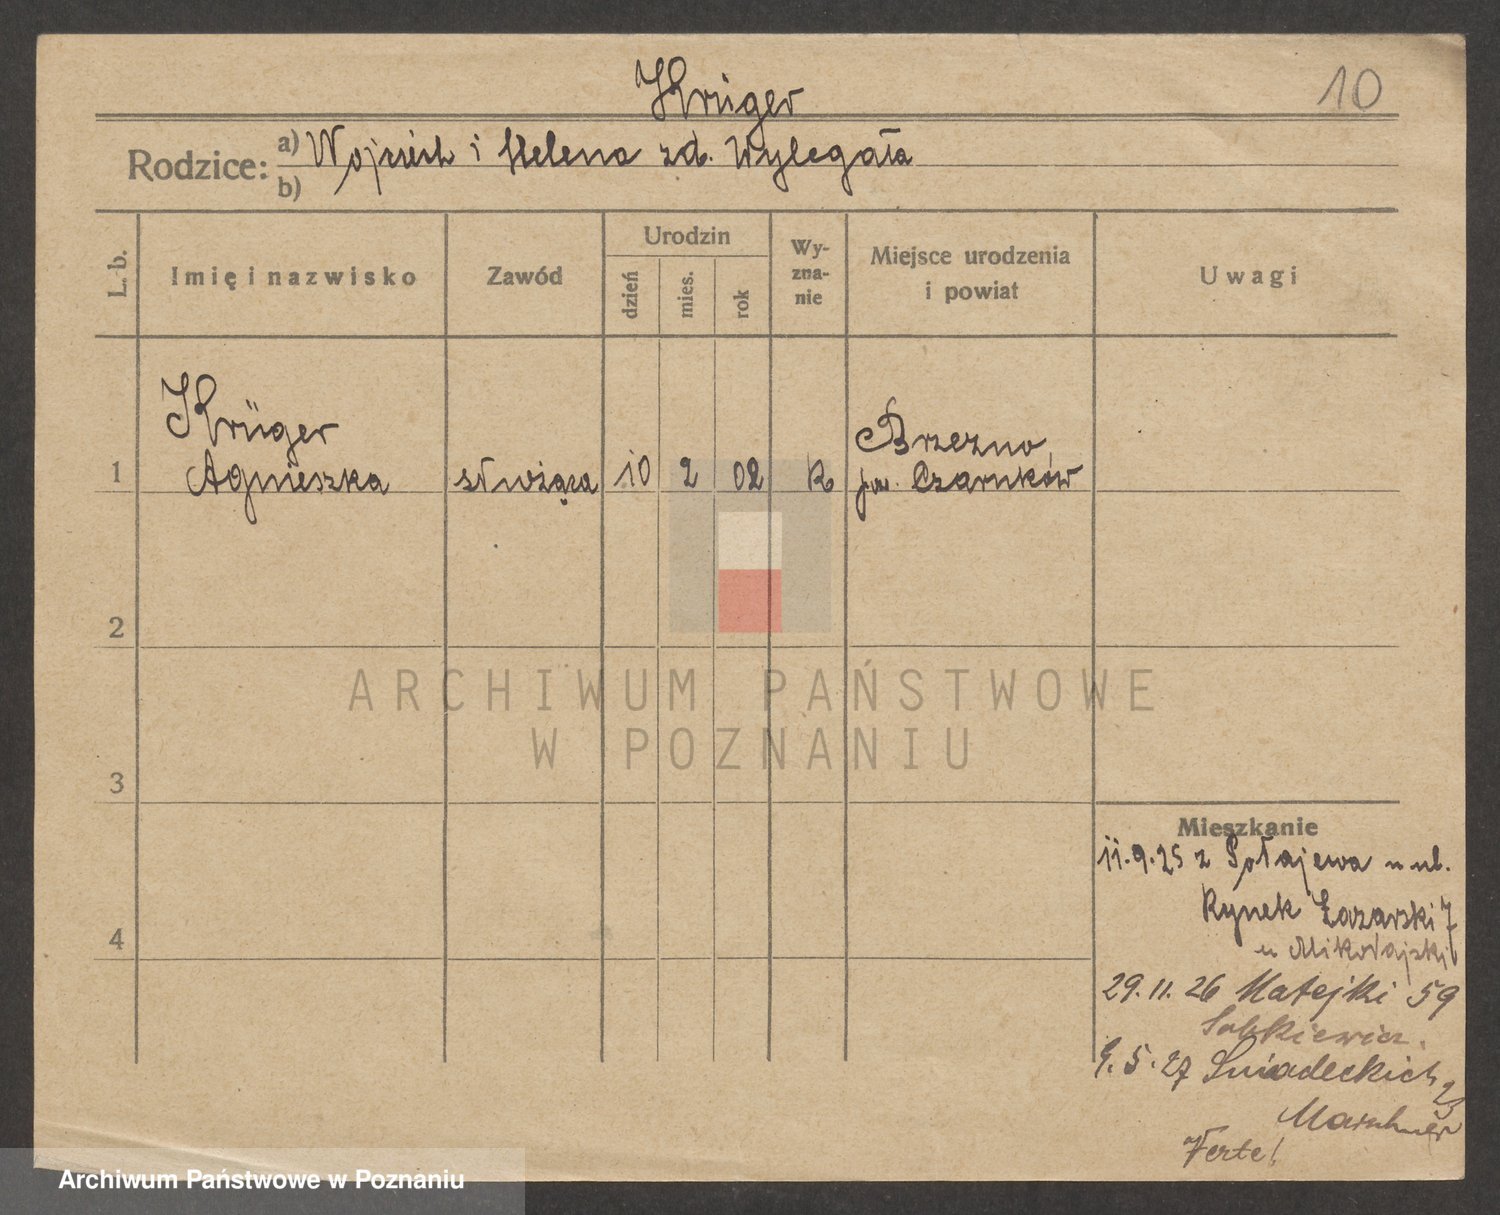 Krüger
10
Rodzice: a) Wojciech i Helena zd. Wylegała
b)
L. b.
Imię i nazwisko
Zawód
Urodzin
dzień
mies.
rok
Wy-
zna-
nie
Miejsce urodzenia
i powiat
Uwagi
Krüger
1 Agnieszka służąca 10 2 02 k
Brzezno
pow. Czarnków
2
3
4
Mieszkanie
11.9.25 z Połajewa n ul.
Rynek Łazarski 7
u Mikołajski
29.11.26 Matejki 59
9.5.27 Śniadeckich 23
Verte!
ARCHIWUM PAŃSTWOWE
W POZNANIU
Archiwum Państwowe w Poznaniu